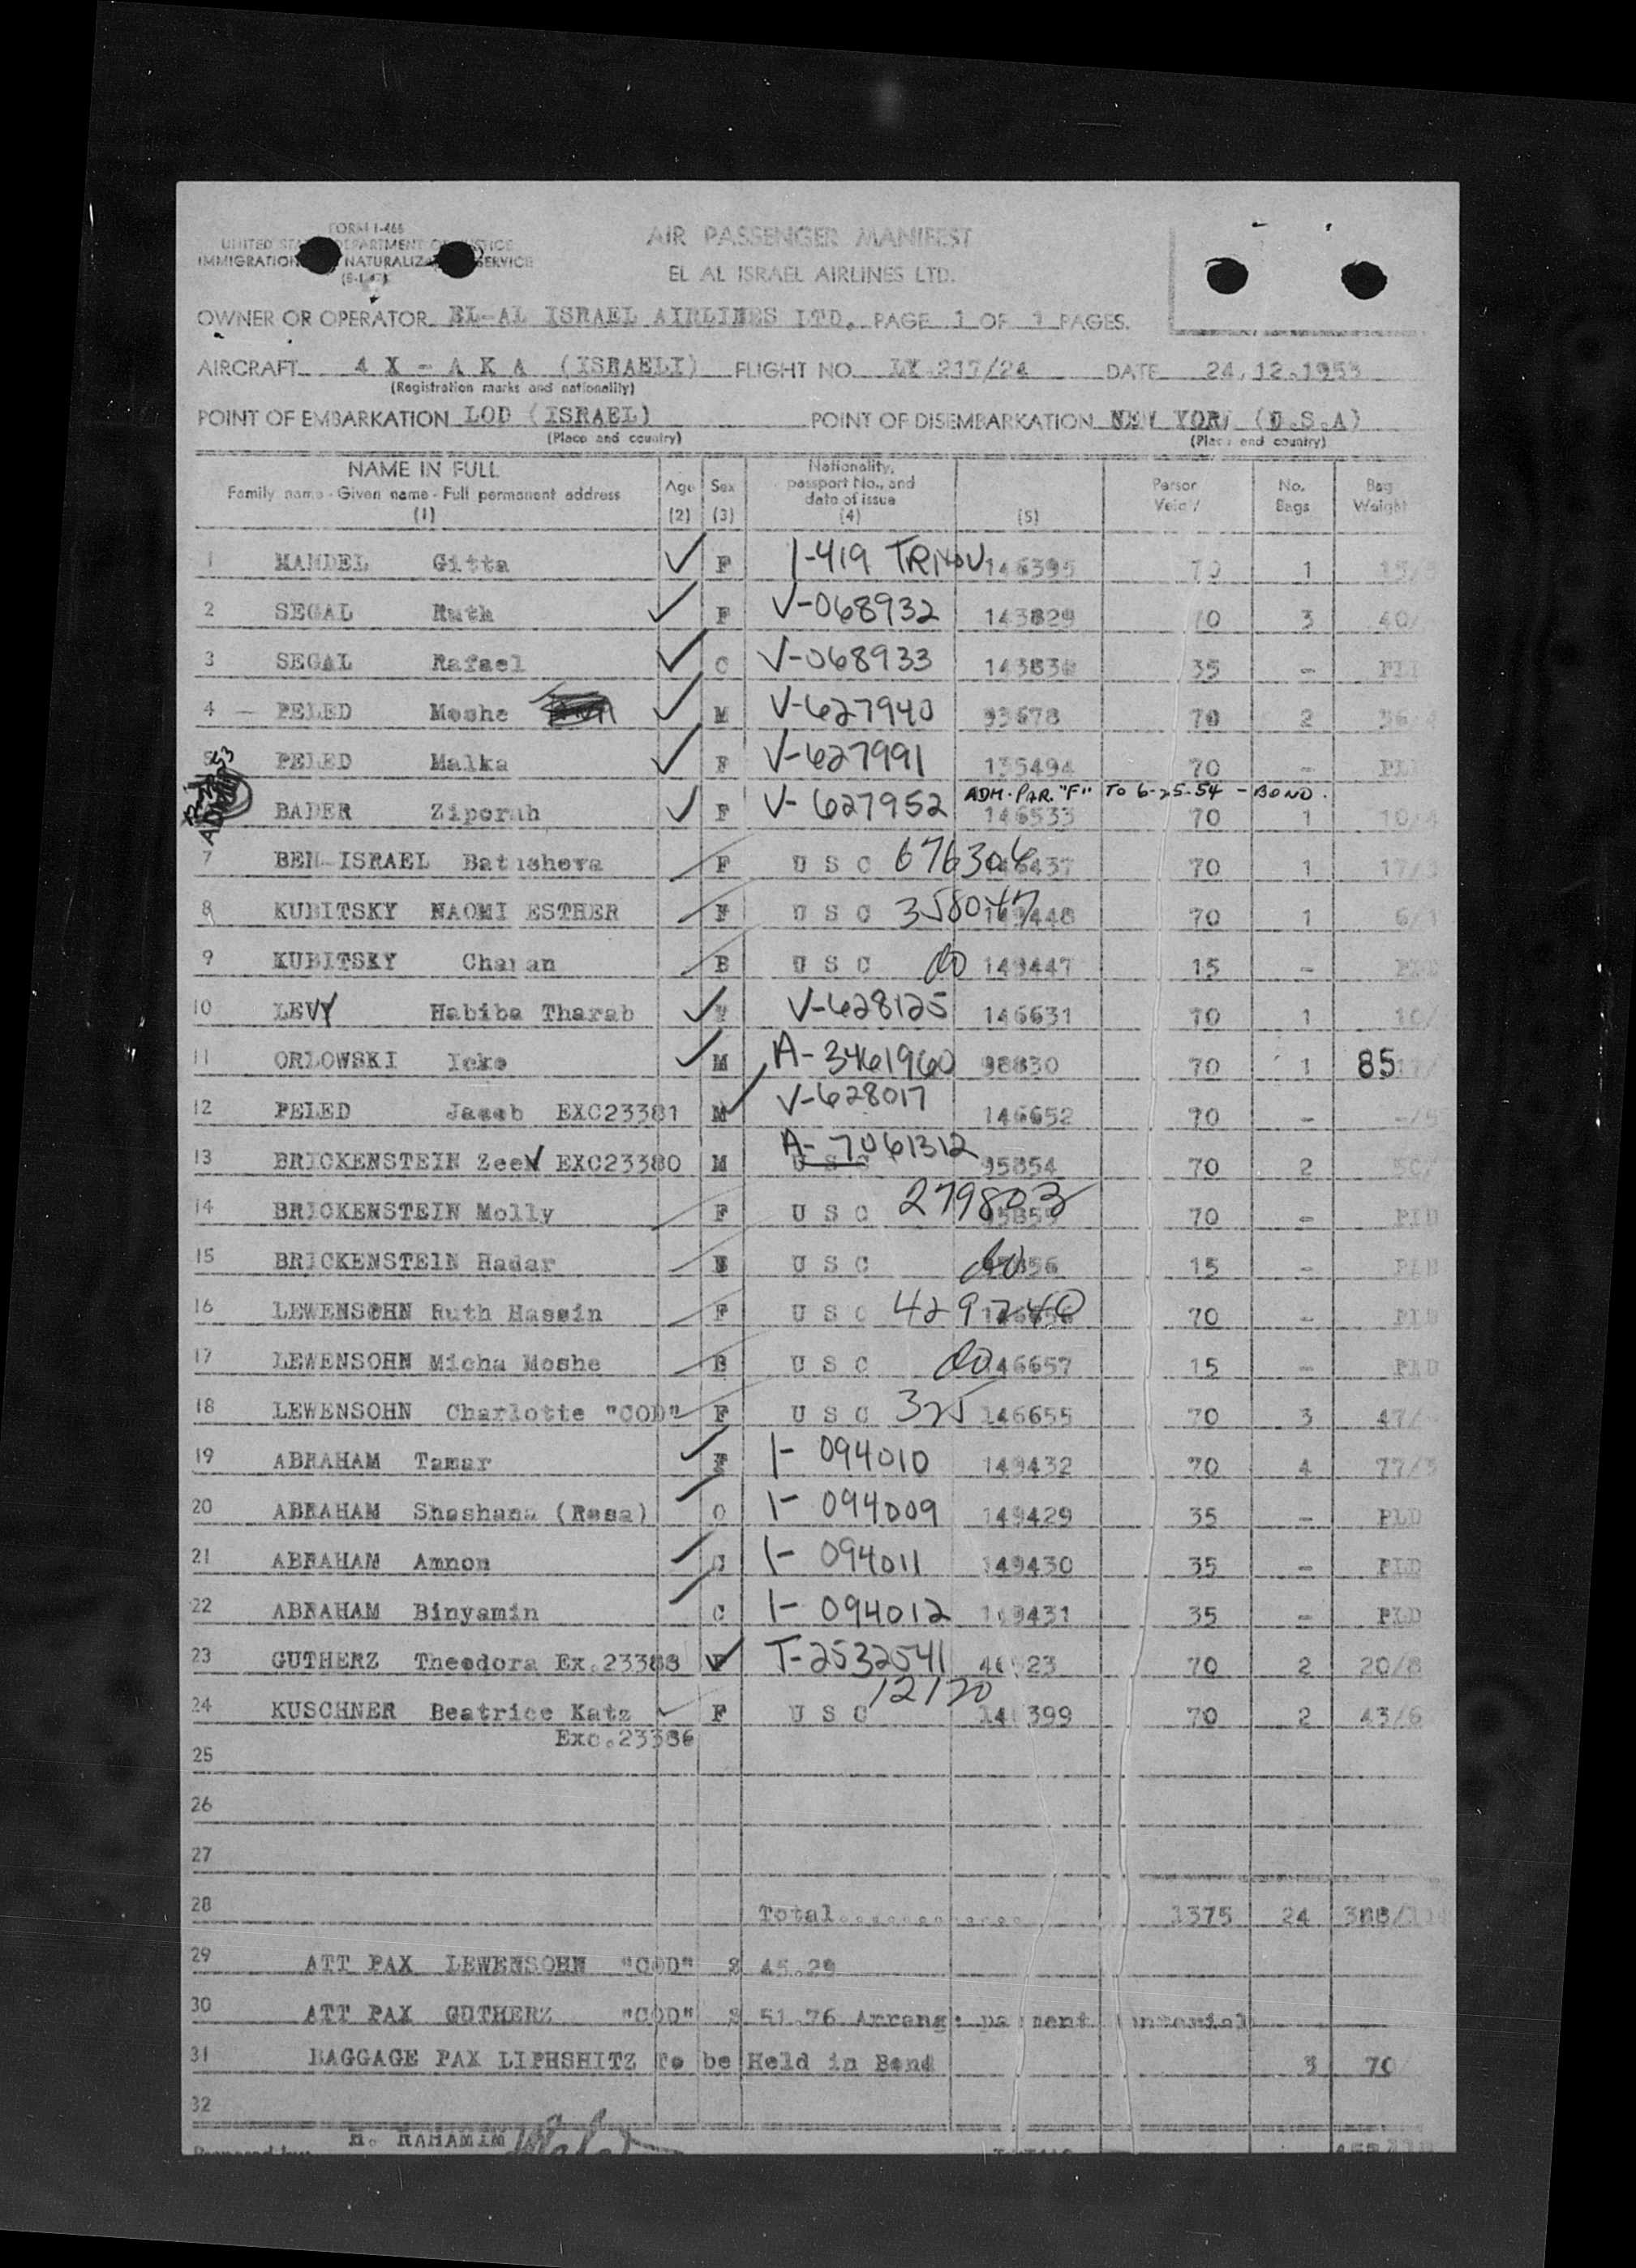 FORM I-466
UNITED STATES DEPARTMENT OF JUSTICE
IMMIGRATION NATURALIZATION SERVICE
AIR PASSENGER MANIFEST
EL AL ISRAEL AIRLINES LTD.
OWNER OR OPERATOR EL-AL ISRAEL AIRLINES LTD. PAGE 1 OF 1 PAGES.
AIRCRAFT 4 X - A K A (ISRAELI) FLIGHT NO. LY 217/24 DATE 24.12.1953
(Registration marks and nationality)
POINT OF EMBARKATION LOD (ISRAEL) POINT OF DISEMBARKATION NEW YORK (U.S.A)
(Place and country) (Place and country)
NAME IN FULL Nationality,
Family name - Given name - Full permanent address Age Sex passport No., and No. Bag
date of issue Bags Weight
(1) (2) (3) (4) (5)
1 MANDEL Gitta F 1-419 146395 70 1
2 SEGAL Ruth F V-068932 143829 70 3 40/
3 SEGAL Rafael C V-068933 35 -
4 - PELED Moshe M V-627940 93678 70 2
5 PELED Malka F V-627991 135494 70 -
ADM. PAR. "F" TO 6-25-54 - BOND.
BADER Ziporah F V-627952 146533 70 1 10/4
7 BEN-ISRAEL Batusheva F U S C 676306 70 1 17/
8 KUBITSKY NAOMI ESTHER F U S C 358047 149448 70 1 6/1
9 KUBITSKY B U S C do 149447 15 - PLD
10 LEVY Habiba Tharab V-628125 146631 70 1 10/
11 ORLOWSKI Icko M A-3461960 98830 70 1 85
12 PELED Jacob EXC23381 M V-628017 146652 70 -
13 BRICKENSTEIN Zeev EXC23380 M A-7061312 U S C 95854 70 2
14 BRICKENSTEIN Molly F U S C 279803 70 - PLD
15 BRICKENSTEIN Hadar U S C do 15 - PLD
16 LEWENSOHN Ruth Hassin F U S C 429240 70 - PLD
17 LEWENSOHN Micha Moshe B U S C do 146657 15 - PLD
18 LEWENSOHN Charlotte "COD" F U S C 325 146655 70 3 47/
19 ABRAHAM Tamar F 1-094010 149432 70 4 77/3
20 ABRAHAM Shoshana (Rosa) C 1-094009 149429 35 - PLD
21 ABRAHAM Amnon C 1-094011 149430 35 - PLD
22 ABRAHAM Binyamin C 1-094012 149431 35 - PLD
23 GUTHERZ Theodora Ex.23388 F T-2532541 70 2 20/8
24 KUSCHNER Beatrice Katz F U S C 12120 70 2 43/6
Exc.23386
25
26
27
28 Total............ 1375 24 388/
29 ATT PAX LEWENSOHN "COD" $ 45.29
30 ATT PAX GUTHERZ "COD" $ 51.76 Arrange payment
31 BAGGAGE PAX LIPHSHITZ To be Held in Bond 3 70
32
H. RAHAMIM
Prepared by: